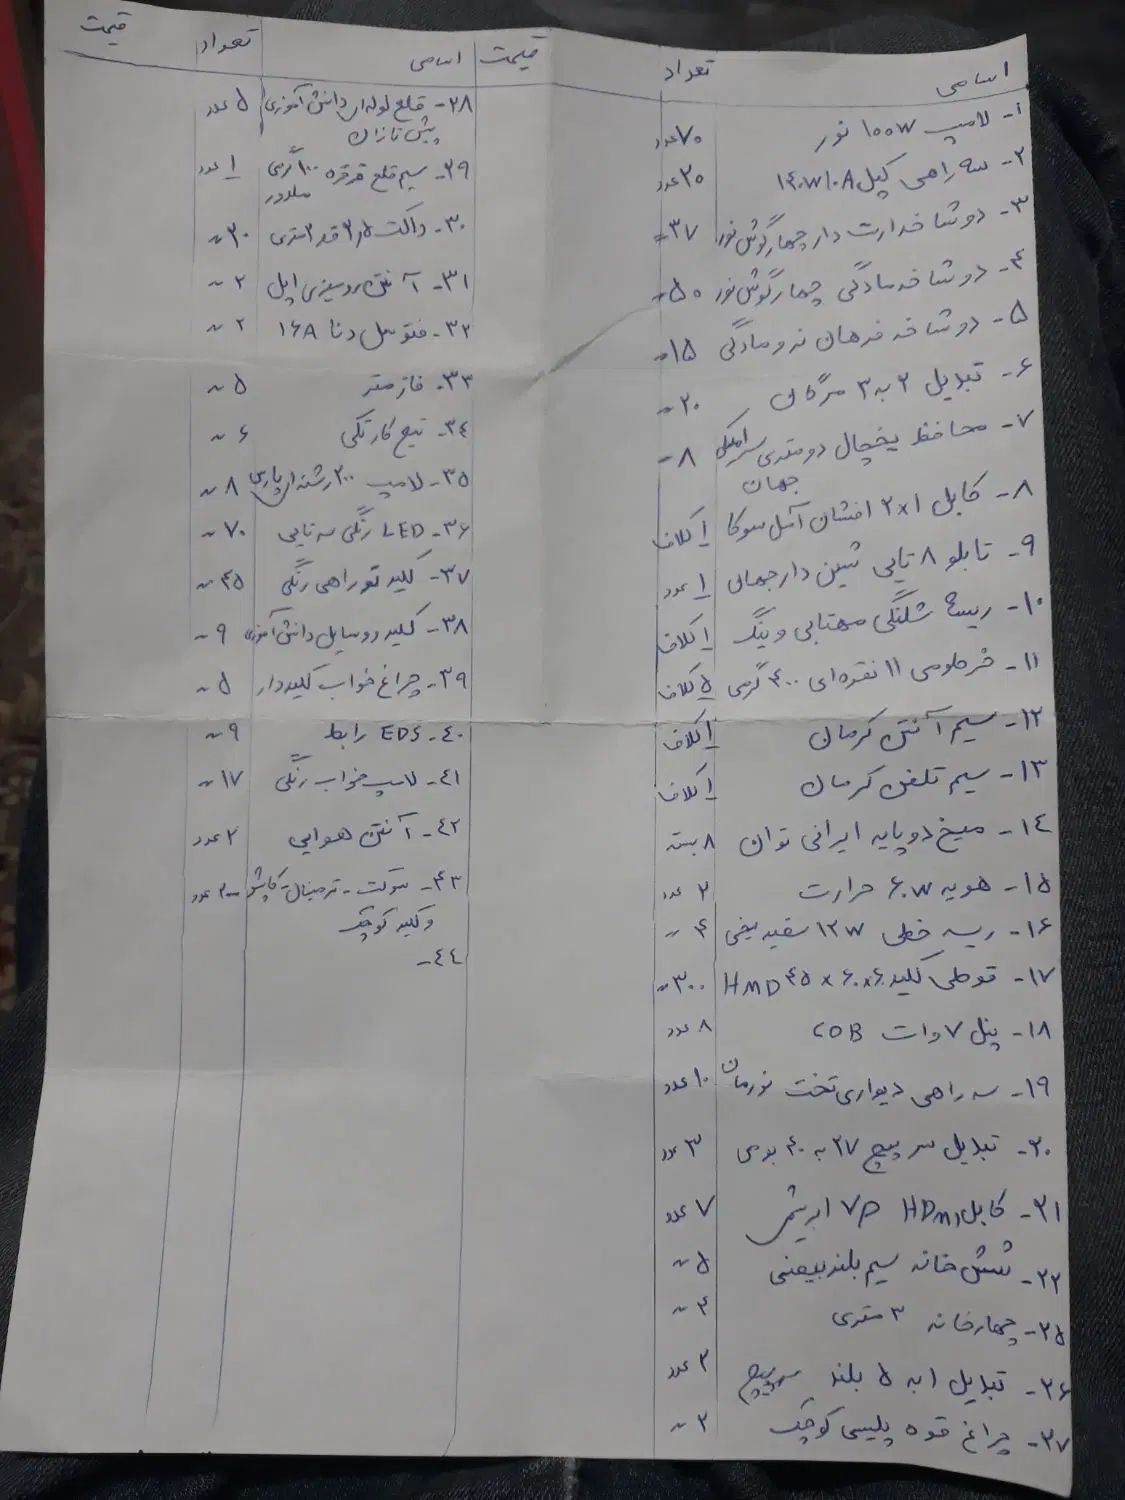 اسامی تعداد قیمت
۱- لامپ ۱۰۰W نور ۷۰ عدد
۲- سه راهی کپل ۱۰A ۳۰ عدد
۳- دوشاخه ارت دار چهارگوش نور ۳۷ ~
۴- دوشاخه مادگی چهارگوش نور ۵۰ ~
۵- دوشاخه فرهان نر و مادگی ۱۵ ~
۶- تبدیل ۲ به ۳ مژگان ۲۰ ~
۷- محافظ یخچال دو متری سرامیکی ۸ ~
جهان
۸- کابل ۲x۱ افشان آسل سوکا ۱ کلاف
۹- تابلو ۸ تایی شین دار جهان ۱ عدد
۱۰- ریسه شلنگی مهتابی وینگ ۱ کلاف
۱۱- خرطومی ۱۱ نقره‌ای ۴۰۰ گرمی ۵ کلاف
۱۲- سیم آنتن کرمان ۱ کلاف
۱۳- سیم تلفن کرمان ۱ کلاف
۱۴- میخ دوپایه ایرانی توان ۸ بسته
۱۵- هویه ۶۰W حرارت ۲ عدد
۱۶- ریسه خطی ۱۲W سفید یخی ۴ ~
۱۷- قوطی کلید ۶۰x۶۰x۴۵ HMD ۳۰۰ ~
۱۸- پنل ۷ وات COB ۸ عدد
۱۹- سه راهی دیواری تخت نورمان ۱۰ عدد
۲۰- تبدیل سرپیچ ۲۷ به ۴۰ بومی ۳ عدد
۲۱- کابل HDMI ابریشم ۷ عدد
۲۲- شش خانه سیم بلند بیعنی ۵ ~
۲۵- چهارخانه ۳ متری ۴ ~
۲۶- تبدیل ۱ به ۵ بلند سرپیچ ۲ عدد
۲۷- چراغ قوه پلیسی کوچک ۲ ~
اسامی تعداد قیمت
۲۸- قلع لوله‌ای دانش آموزی ۵ عدد
پیش تازان
۲۹- سیم قلع قرقره ۱۰۰ گرمی ۱ عدد
۳۰- داکت ۳٫۵ قد ۲ متری ۳۰ ~
۳۱- آنتن رومیزی اپل ۲ ~
۳۲- فتوسل دنا ۱۶A ۲ ~
۳۳- فازمتر ۵ ~
۳۴- تیغ کارتکی ۶ ~
۳۵- لامپ ۲۰۰ رشته‌ای پارس ۸ ~
۳۶- LED رنگی سه تایی ۷۰ ~
۳۷- کلید تو راهی رنگی ۴۵ ~
۳۸- کلید و وسایل دانش آموزی ۹ ~
۳۹- چراغ خواب کلیددار ۵ ~
۴۰- EDS رابط ۹ ~
۴۱- لامپ خواب رنگی ۱۷ ~
۴۲- آنتن هوایی ۲ عدد
۴۳- سوکت - ترمینال - عدد
و کلید کوچک
۴۴-